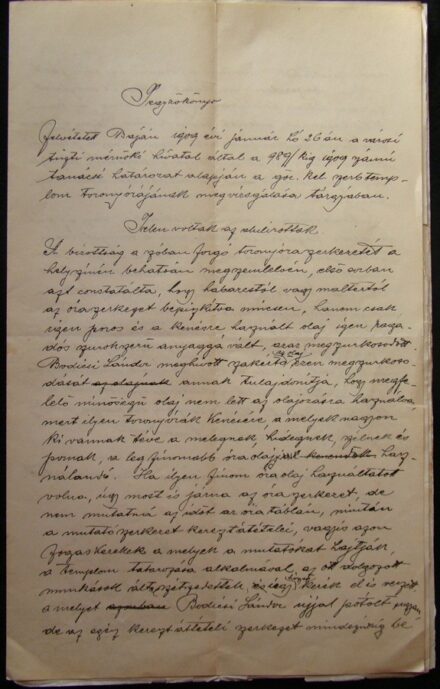 Jegyzőkönyv
Felvétetett Baján 1909 évi január hó 26 án a városi
tiszti mérnöki hivatal által a 989/kig 1909 számú
tanácsi határozat alapján a gör. kel szerb temp-
lom toronyórájának megvizsgálása tárgyában.
Jelen voltak az alulirottak
A bizottság a szóban forgó toronyóra szerkezetét a
helyszinén behatóan megszemlélvén, első sorban
azt constatálta, hogy habarcstól vagy maltertól
az óraszerkezet bepiszkítva nincsen, hanem csak
igen poros és a kenésre használt olaj igen raga-
dós szurokszerű anyaggá vált, azaz megszurkosodott
Bodicsi Sándor meghivott szakértő az olaj ezen megszurkoso-
dását az olajnak annak tulajdonitja, hogy megfe-
lelő minőségű olaj nem lett az olajozásra használva
mert ilyen toronyórák kenésére, a melyek nagyon
ki vannak téve a melegnek, hidegnek, szélnek és
pornak, a leg finomabb óra olajjal hasz-
nálandó. Ha ilyen finom óra olaj használtatott
volna, úgy most is járna az óraszerkezet, de
nem mutatná az időt az óratáblán, miután
a mutató szerkezet keresztáttételei, vagyis azon
fogaskerekek a melyek a mutatókat hajtják,
a templom tatarozása alkalmával, az ott dolgozott
munkások által szétszedettek, és egy kerék el is veszett
a melyet Bodicsi Sándor újjal pótolt ugyan
de az egész keresztáttételi szerkezet mindezideig be